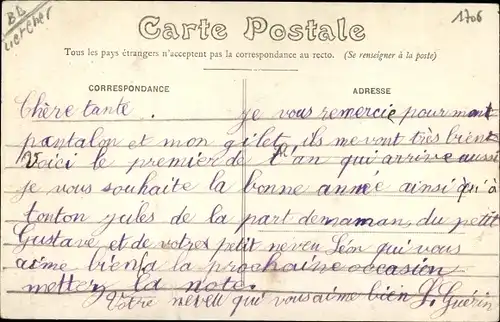 BD
Loir et Cher
1706
Carte Postale
Tous les pays étrangers n'acceptent pas la correspondance au recto. (Se renseigner à la poste)
CORRESPONDANCE
ADRESSE
Chère tante. Je vous remercie pour mont
pantalon et mon gilet, ils me vont très bient
Voici le premier de l'an qui arrive aussi
je vous souhaite la bonne année ainsi qu'à
tonton jules de la part de maman, du petit
Gustave et de votres petit neveu Léon qui vous
aime bien. la prochaine occasion
mettez la note.
Votre neveu qui vous aime bien L. Guérin